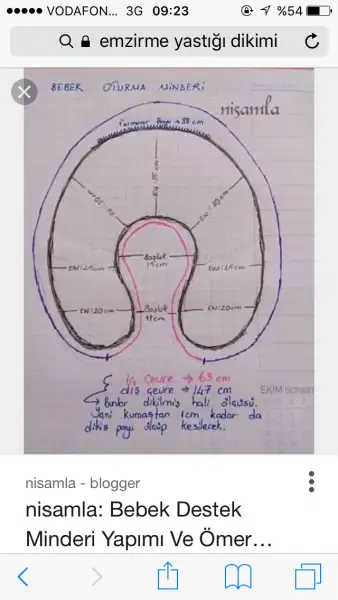 VODAFON... 3G 09:23 %54
emzirme yastığı dikimi
BEBEK OTURMA MİNDERİ
nişamla
Fermuar Payı → 38 cm
EN: 35 cm
EN: 30 cm
EN: 30 cm
Boşluk
15 cm
EN: 25 cm
EN: 25 cm
EN: 20 cm
Boşluk
11 cm
EN: 20 cm
İç çevre → 63 cm
dış çevre → 147 cm
→ Bunlar dikilmiş hali ölçüsü.
Yani kumaştan 1cm kadar da
dikiş payı ölçüp kesilecek.
nisamla - blogger
nisamla: Bebek Destek
Minderi Yapımı Ve Ömer...